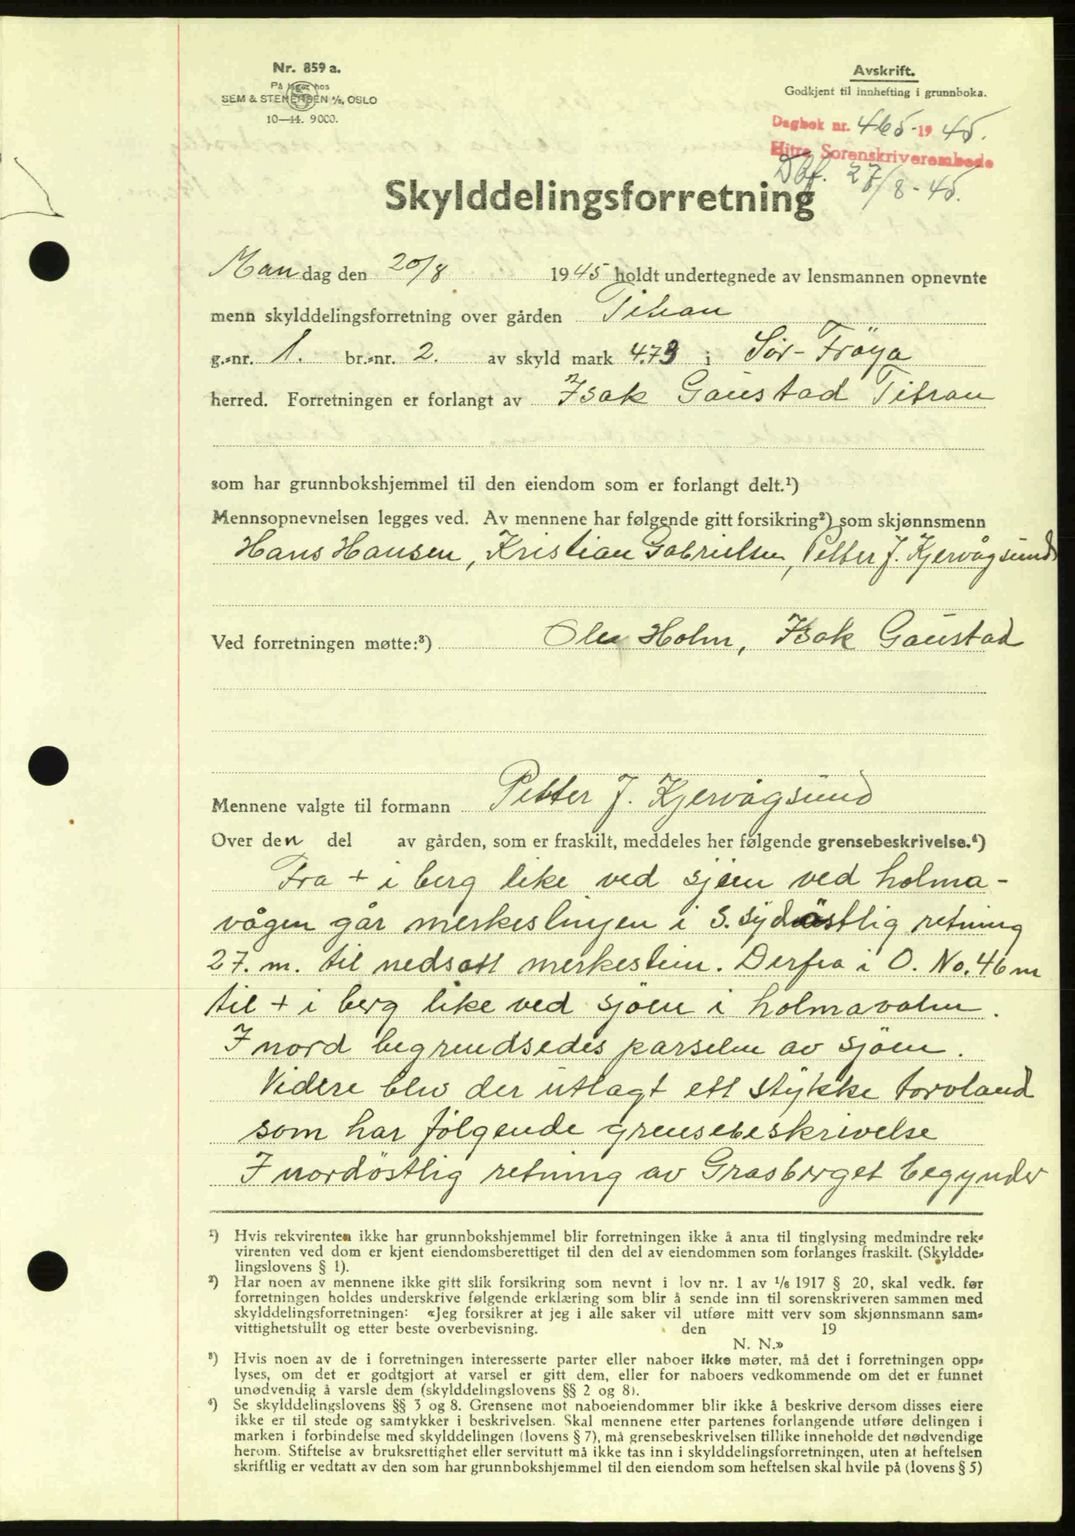 Nr. 859 a.
På lager hos
SEM & STENERSEN A/S, OSLO
10—44. 9000.
Avskrift.
Godkjent til innhefting i grunnboka.
Dagbok nr. 465-1945.
Hitra Sorenskriverembede
Dbf. 27/8-45.
Skylddelingsforretning
Mandag den 20/8 1945 holdt undertegnede av lensmannen opnevnte
menn skylddelingsforretning over gården Titran
g.-nr. 1. br.-nr. 2. av skyld mark 4.73 i Sör-Fröya
herred. Forretningen er forlangt av Isak Gaustad Titran
som har grunnbokshjemmel til den eiendom som er forlangt delt.¹)
Mennsopnevnelsen legges ved. Av mennene har følgende gitt forsikring²) som skjønnsmenn
Hans Hansen, Kristian Gabrielsen, Petter J. Kjervågsund
Ved forretningen møtte:³) Ole Holm, Isak Gaustad
Mennene valgte til formann Petter J. Kjervågsund
Over den del av gården, som er fraskilt, meddeles her følgende grensebeskrivelse.⁴)
Fra + i berg like ved sjöen ved holma-
vågen går merkeslinjen i S. sydöstlig retning
27. m. til nedsatt merkestein. Derfra i O. No. 46 m
til + i berg like ved sjöen i
I nord begrendsedes parselen av sjöen.
Videre blev der utlagt ett stykke torvland
som har følgende grensebeskrivelse
I nordöstlig retning av Grasberget begynder
¹) Hvis rekvirenten ikke har grunnbokshjemmel blir forretningen ikke å anta til tinglysing medmindre rek-
virenten ved dom er kjent eiendomsberettiget til den del av eiendommen som forlanges fraskilt. (Skyldde-
lingslovens § 1).
²) Har noen av mennene ikke gitt slik forsikring som nevnt i lov nr. 1 av 1/6 1917 § 20, skal vedk. før
forretningen holdes underskrive følgende erklæring som blir å sende inn til sorenskriveren sammen med
skylddelingsforretningen: «Jeg forsikrer at jeg i alle saker vil utføre mitt verv som skjønnsmann sam-
vittighetsfullt og etter beste overbevisning. den 19
N. N.»
³) Hvis noen av de i forretningen interesserte parter eller naboer ikke møter, må det i forretningen opp-
lyses, om det er godtgjort at varsel er gitt dem, eller for naboers vedkommende om det er funnet
unødvendig å varsle dem (skylddelingslovens §§ 2 og 8).
⁴) Se skylddelingslovens §§ 3 og 8. Grensene mot naboeiendommer blir ikke å beskrive dersom disses eiere
ikke er til stede og samtykker i beskrivelsen. Skal mennene etter partenes forlangende utføre delingen i
marken i forbindelse med skylddelingen (lovens § 7), må grensebeskrivelsen tillike inneholde det nødvendige
herom. Stiftelse av bruksrettighet eller servitutt må ikke tas inn i skylddelingsforretningen, uten at heftelsen
skriftlig er vedtatt av den som har grunnbokshjemmel til den eiendom som heftelsen skal hvile på (lovens § 5)